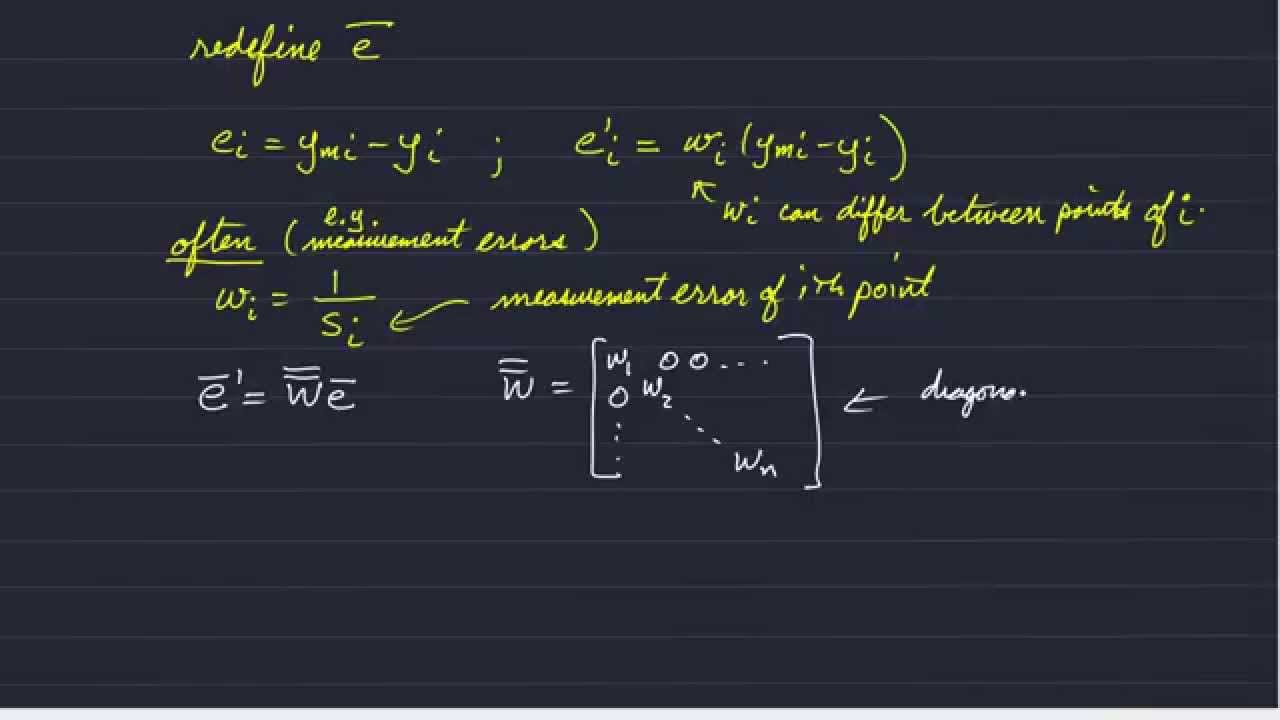 redefine e̅
eᵢ = yₘᵢ - yᵢ ; e'ᵢ = wᵢ (yₘᵢ - yᵢ)
wi can differ between points of i.
often (e.g. measurement errors)
wᵢ = 1/sᵢ ← measurement error of ith point
e̅' = W̿ e̅ W̿ = [w₁ 0 0 ...
0 w₂
⋮ ⋱ wₙ] ← diagona